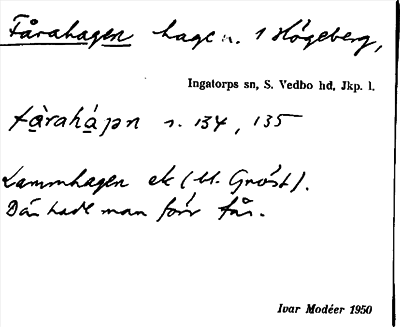 Fårahagen hage n. 1 Högeberg,
Ingatorps sn, S. Vedbo hd, Jkp. l.
fàrahápn s. 134, 135
Lammhagen ek (bl. Gröst).
Där hade man förr får.
Ivar Modéer 1950